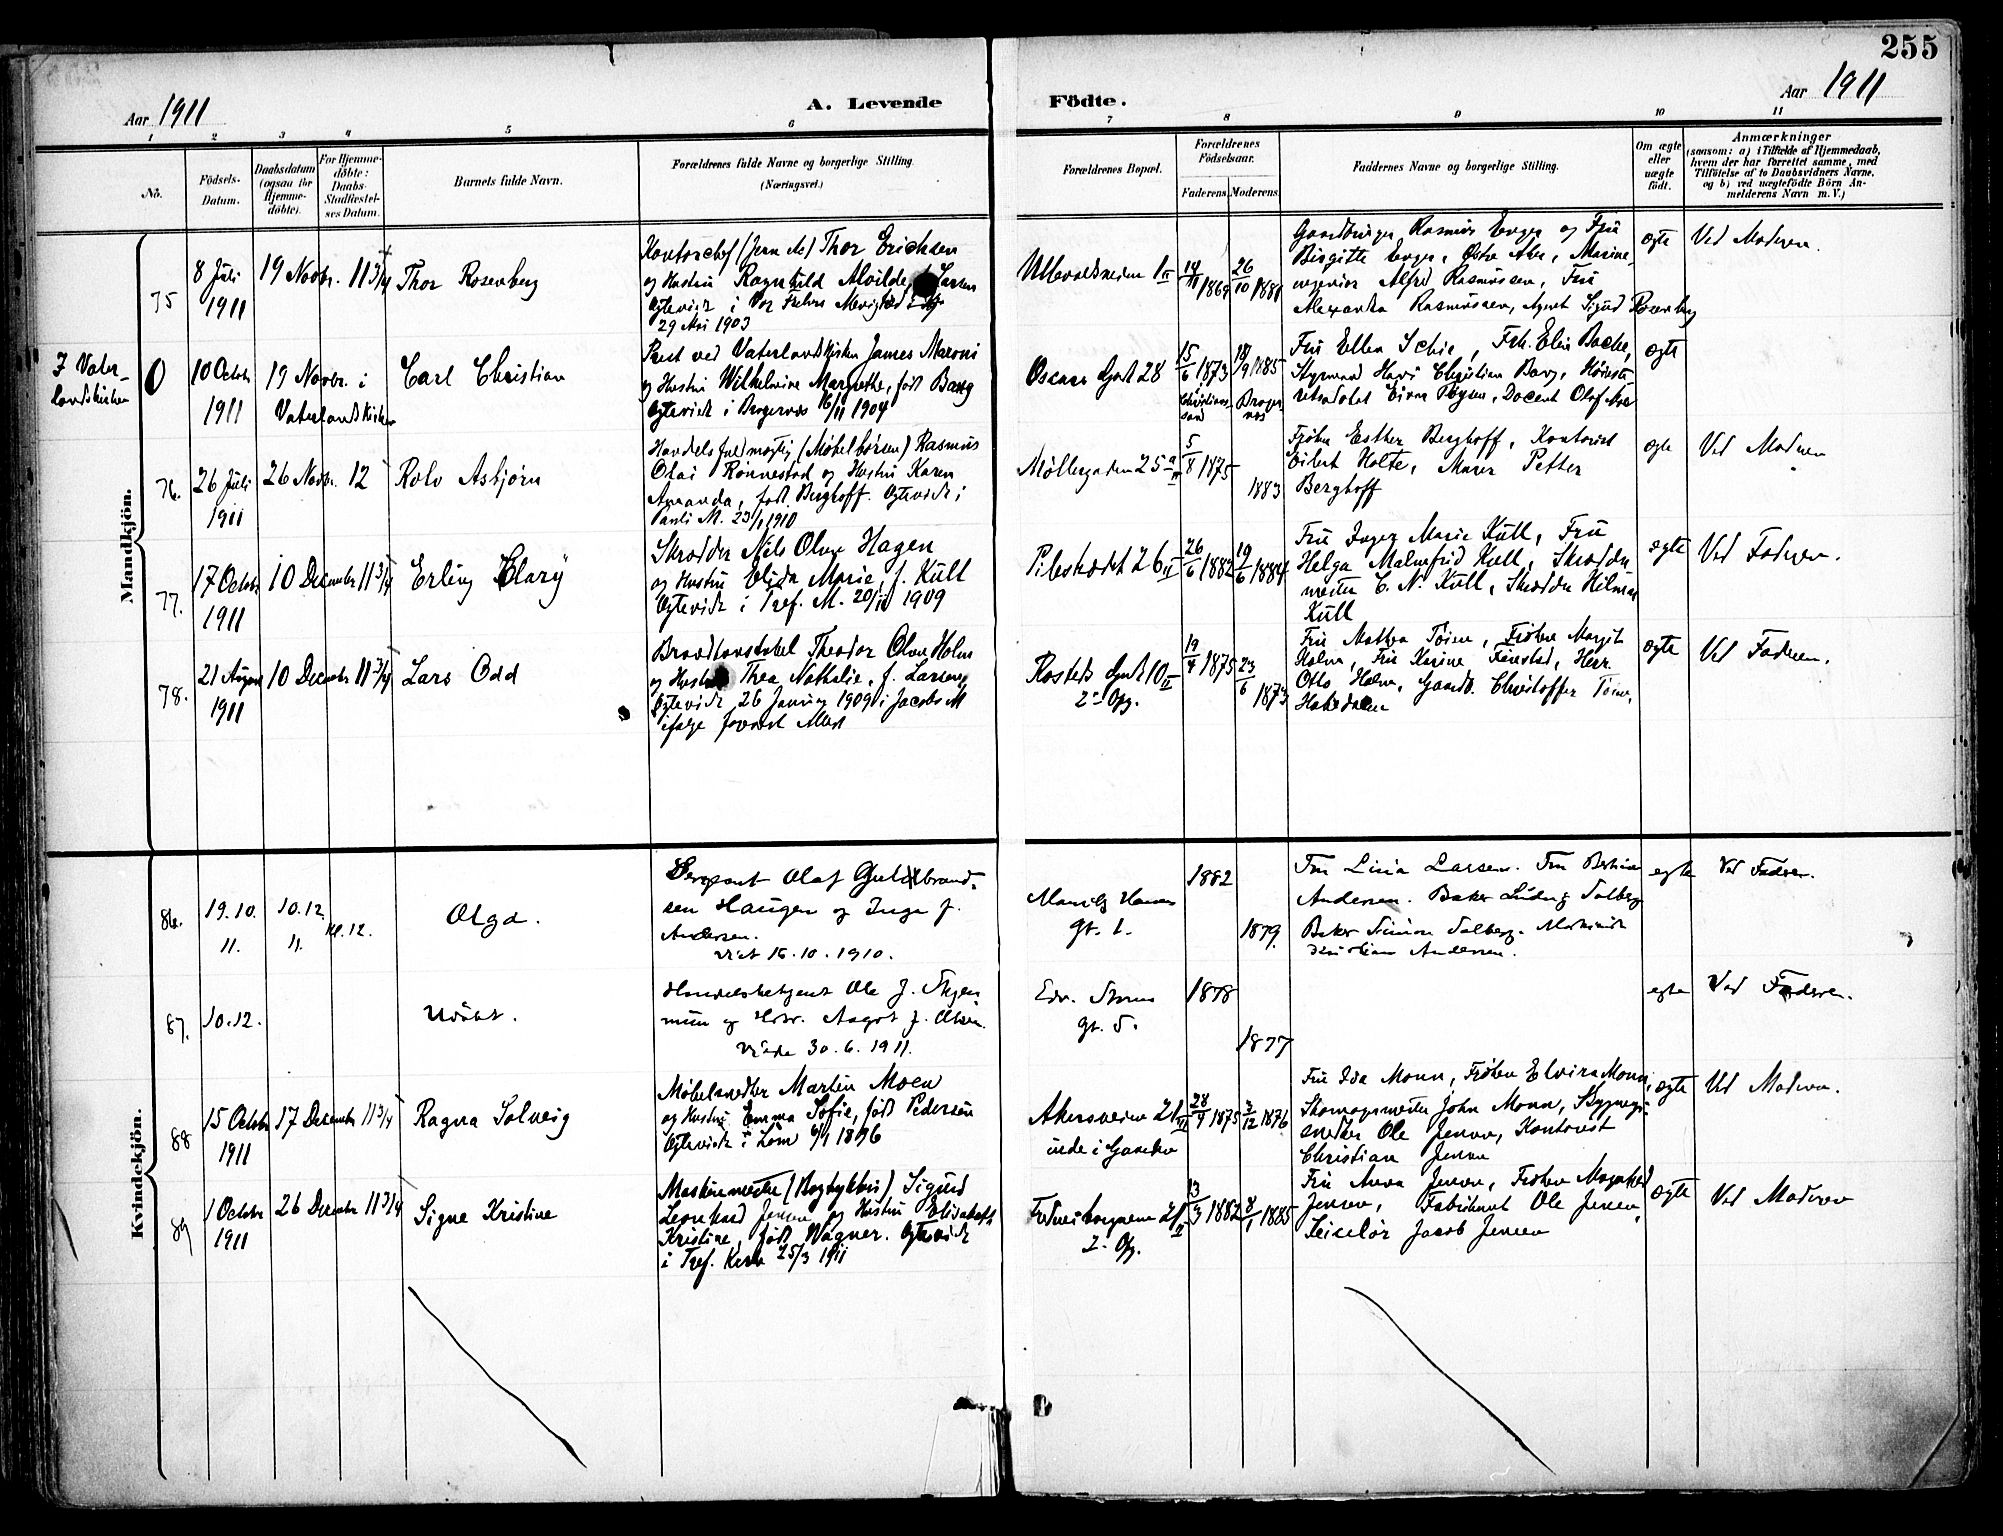 255
Aar 1911
A. Levende
Födte.
Aar 1911
1 2 3 4 5 6 7 8 9 10 11
No.
Födsels-
Datum.
Daabsdatum
(ogsaa for
Hjemme-
döbte).
For Hjemme-
döbte:
Daabs-
Stadfæstel-
ses Datum.
Barnets fulde Navn.
Forældrenes fulde Navne og borgerlige Stilling.
(Næringsvei.)
Forældrenes Bopæl.
Forældrenes
Födselsaar.
Faderens.
Moderens.
Faddernes Navne og borgerlige Stilling.
Om ægte
eller
uægte
födt.
Anmærkninger
(saasom: a) i Tilfælde af Hjemmedaab,
hvem der har forrettet samme, med
Tilföielse af to Daabsvidners Navne,
og b) ved uægtefödte Börn An-
melderens Navn m. V.)
Mandkjön.
75
8 Juli
1911
19 Novbr. 11 3/4
Thor Rosenberg
Kontorchef (Jern &c) Thor Erichsen
og Hustru Ragnhild Alvilde, f. Larsen
Egteviet i Vor Frelsers Menighed
29 Mai 1903
Ullevoldsveien 1 II
14/11 1869
26/10 1880
Gaardbruger Rasmus Enger og Fru
Birgitte Enger, Østre Aker, Marine-
ingeniør Alfred Rasmussen, Fru
Alexandra Rasmussen, Agent Sigurd Rosenberg
ægte
Ved Moderen.
I Vater-
landskirken
0
10 Octobr
1911
19 Novbr. i
Vaterlandskirken
Carl Christian
Prest ved Vaterlandskirken James Maroni
og Hustru Wilhelmine Margrethe, født Bang
Egteviet i Bragernæs 16/11 1904
Oscars Gade 28
15/6 1873
Christians-
sand
18/9 1885
Brager-
næs
Fru Ellen Schie, Frk. Elin Bache,
Styrmand Hans Christian Bang, Høieste-
retsadvokat Einar Pøyen, Docent Oluf
ægte
76.
26 Juli
1911
26 Novbr. 12
Rolv Asbjørn
Handelsfuldmægtig (Møbelbørsen) Rasmus
Olai Rønnestad og Hustru Karen
Amanda, født Berghoff. Egteviet i
Pauli M. 23/1 1910
Møllergaden 25 a
5/8 1875
1883
Frøken Esther Berghoff, Kontorist
Eilert Holte, Maler Petter
Berghoff
ægte
Ved Moderen
77.
17 Octobr
1911
10 December 11 3/4
Erling Harry
Skrædder Nils Olaf Hagen
og Hustru Elida Marie, f. Kull
Egteviet i Tref. M. 20/11 1909
Pilestrædet 26 II
26/6 1882
19/6 1884
Fru Inger Marie Kull, Fru
Helga Malmfrid Kull, Skrædder-
mester C. N. Kull, Skrædder Hilmar
Kull
ægte
Ved Faderen.
78.
21 August
1911
10 December 11 3/4
Lars Odd
Brandkonstabel Theodor Olaf Holm
og Hustru Thea Nathalie, f. Larsen
Egteviet 26 Januar 1909 i Jacobs M
ifølge forevist Attest
Rosteds Gade 10 II
2den Opg.
19/4 1875
23/6 1873
Fru Mathea Tøien, Frøken Margit
Holm, Fru Karine Finstad, Herr
Otto Holm, Gaardb. Christoffer Tøien,
Hakedalen
ægte
Ved Faderen.
Kvindekjön.
86.
19.10.
11.
10.12
11.
Kl. 12.
Olga.
Sergeant Olaf Guldbrand-
sen Haugen og Inga f.
Andersen.
viet 16.10.1910.
Gt. 1.
1882
1879.
Fru Lina Larsen. Fru Bertine
Andersen. Baker Ludvig Solberg
Baker Simon Solberg. Maskinist
Kristian Andersen.
egte
Ved Faderen.
87.
10.12.
Udöbt.
Handelsbetjent Ole J. Skjen-
mun og Hstr. Aagot f. Olsen.
viede 30.6.1911.
Edv. Storms
gt. 5.
1878
1877
egte
Ved Faderen.
88
15 Octobr
1911
17 December 11 3/4
Ragna Solveig
Møbelsnedker Martin Moen
og Hustru Emma Sofie, født Pedersen
Egteviet i Lom 6/1 1896
Akersveien 21 II
inde i Gaarden
28/9 1875
2/12 1876
Fru Ida Monn, Frøken Elvira Monn,
Skomagermester John Monn, Bygnings-
snedker Ole Jensen, Kontorist
Christian Jensen
ægte
Ved Moderen.
89
1 Octobr
1911
26 December 11 3/4
Signe Kristine
Maskinmester (Bogtykkeri) Sigurd
Leonhard Jensen og Hustru Elisabeth
Kristine, født Wagner. Egteviet
i Tref. Kirke 25/3 1911
Fredensborgveien 21 II
2. Opg.
13/3 1882
8/1 1885
Fru Anna Jensen, Frøken Magnhild
Jensen, Fabrikant Ole Jensen,
Ciselør Jacob Jensen
ægte
Ved Moderen